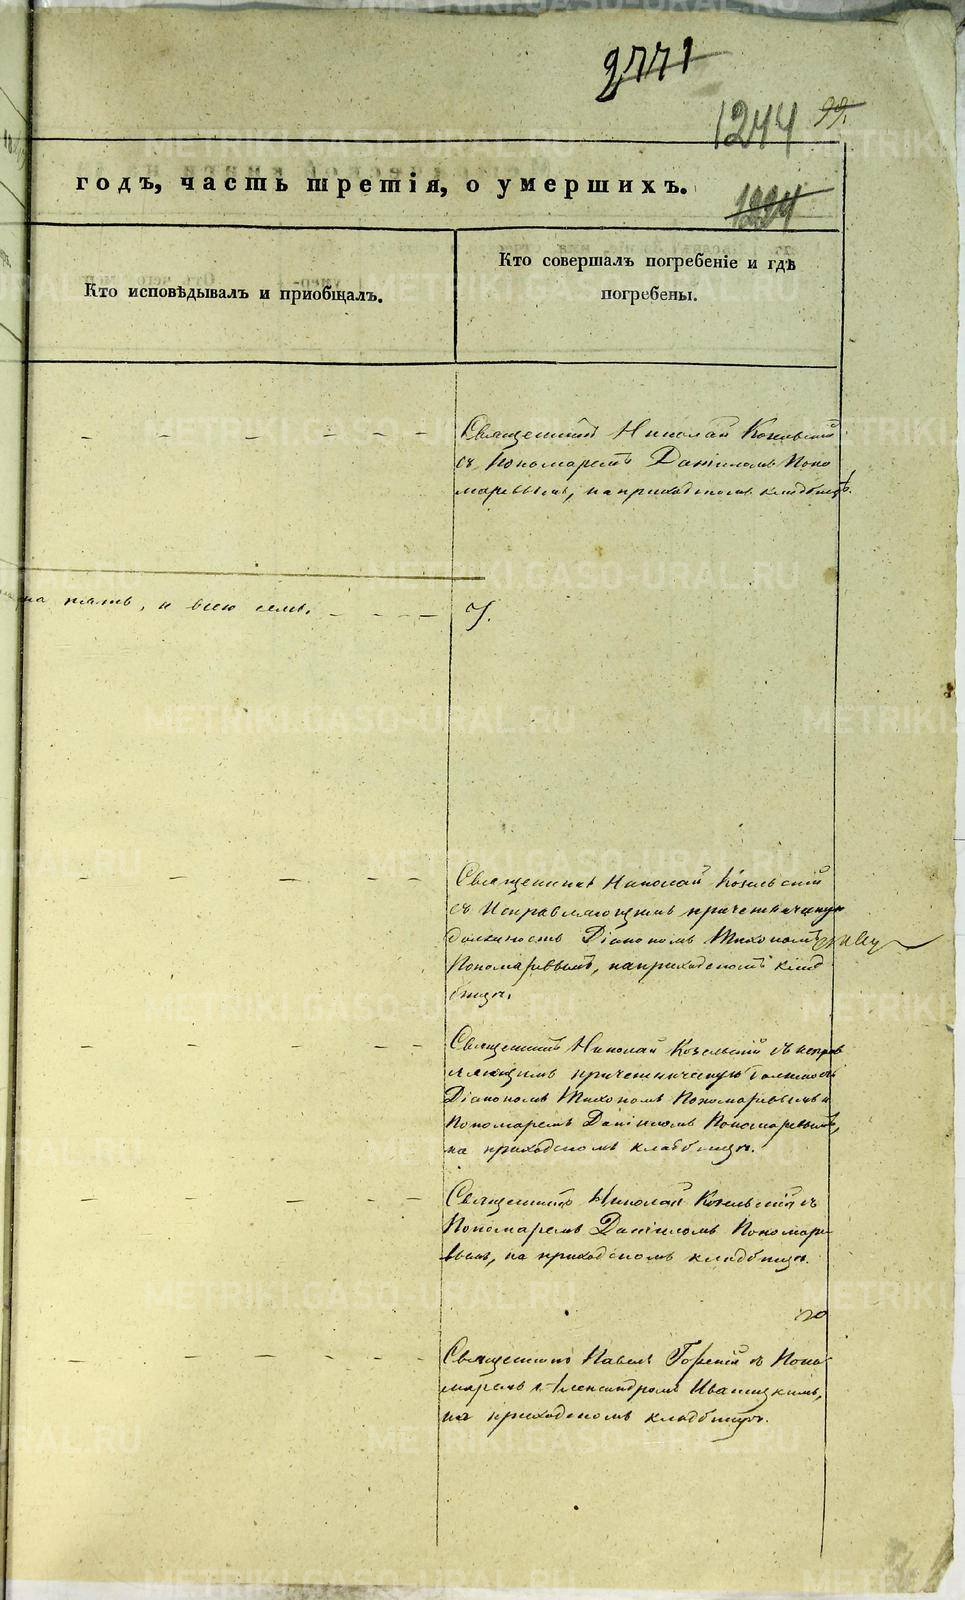 2771
1244 99.
годъ, часть третія, о умершихъ.
1224
Кто исповѣдывалъ и приобщалъ.
Кто совершалъ погребеніе и гдѣ
погребены.
Священникъ Николай Козельскій
съ Пономаремъ Даніиломъ Поно
маревымъ, на приходскомъ кладбищѣ.
на пять, и всею семь.
7.
Священникъ Николай Козельскій
съ Исправляющимъ причетническую
должность Діакономъ Тихономъ
Пономаревымъ, на приходскомъ клад
бищѣ.
Священникъ Николай Козельскій съ исправ
ляющимъ причетническую должность
Діакономъ Тихономъ Пономаревымъ и
Пономаремъ Даніиломъ Пономаревымъ,
на приходскомъ кладбищѣ.
Священникъ Николай Козельскій съ
Пономаремъ Даніиломъ Пономаре
вымъ, на приходскомъ кладбищѣ.
Священникъ Павелъ съ Поно
маремъ Александромъ Иваницкимъ,
на приходскомъ кладбищѣ.
METRIKI.GASO-URAL.RU